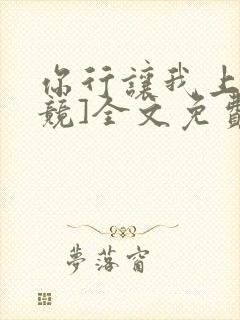 你行讓我上
競]全文免費
夢落窗